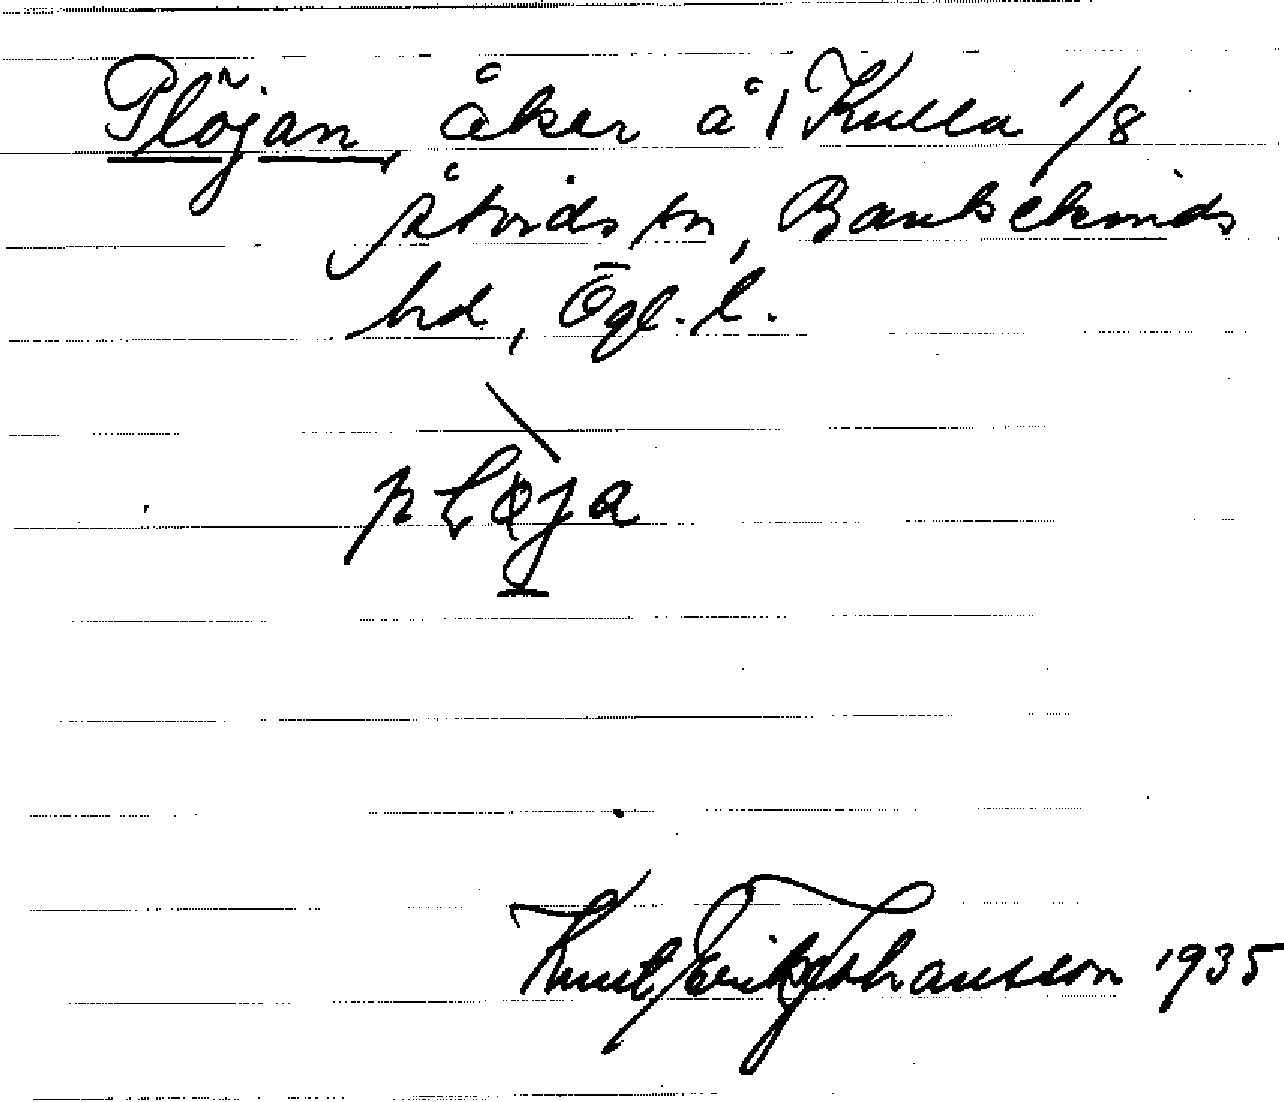 Plöjan, åker å 1 Kulla 1/8
Åtvids sn, Bankekinds
hd, Ögl. l.
pløja
Knut Erik Johansson 1935